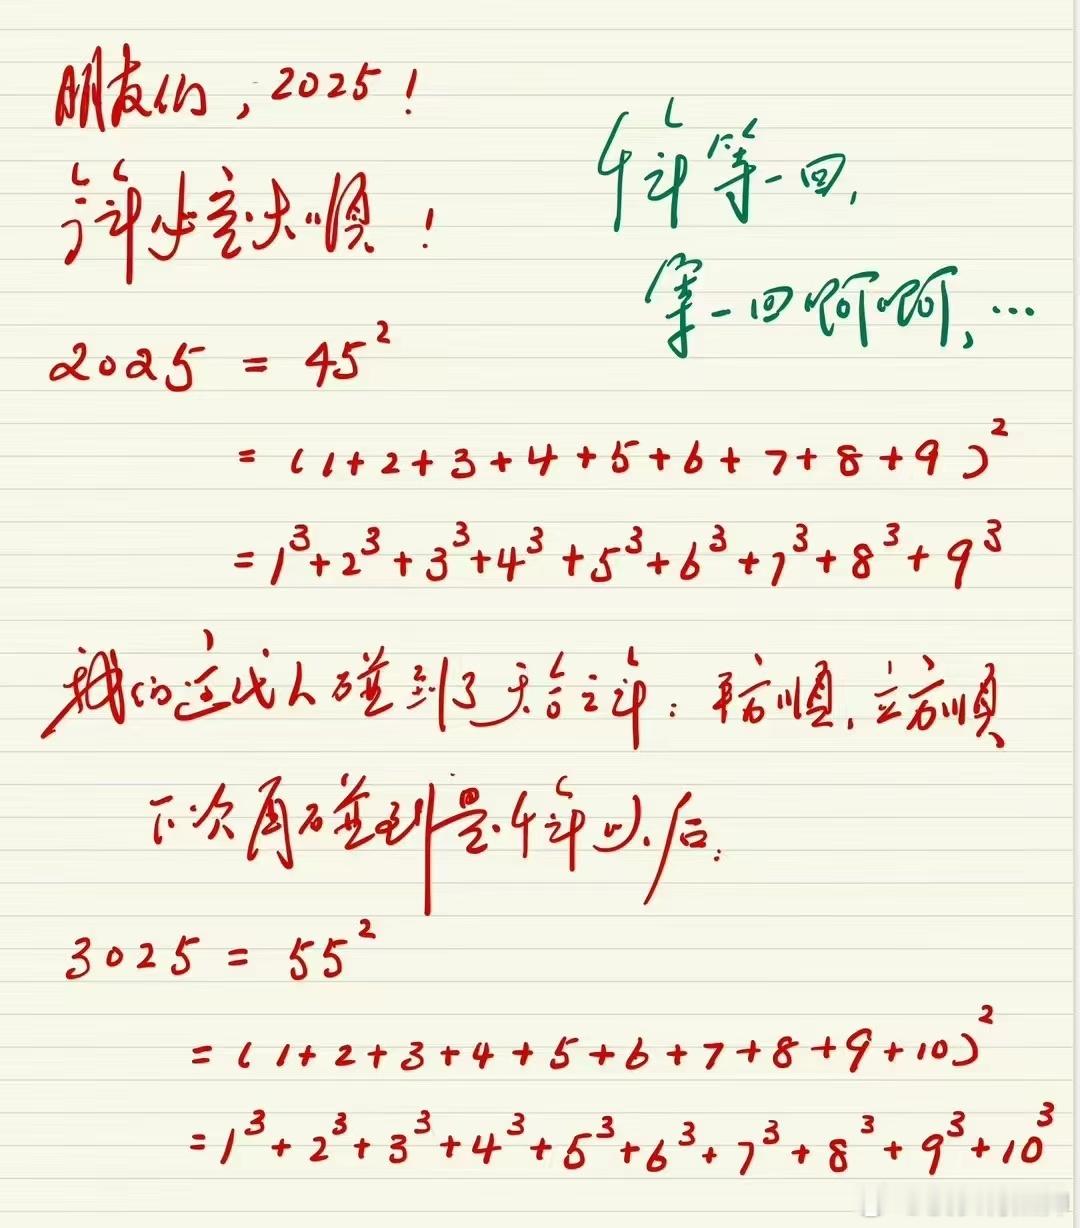 朋友们，2025！
这年必定大顺！
千年等一回，
等一回啊啊，…
2025 = 45²
= (1+2+3+4+5+6+7+8+9)²
= 1³+2³+3³+4³+5³+6³+7³+8³+9³
我们这代人碰到了天合之年：平方顺，立方顺
下次再碰到是千年以后：
3025 = 55²
= (1+2+3+4+5+6+7+8+9+10)²
= 1³+2³+3³+4³+5³+6³+7³+8³+9³+10³